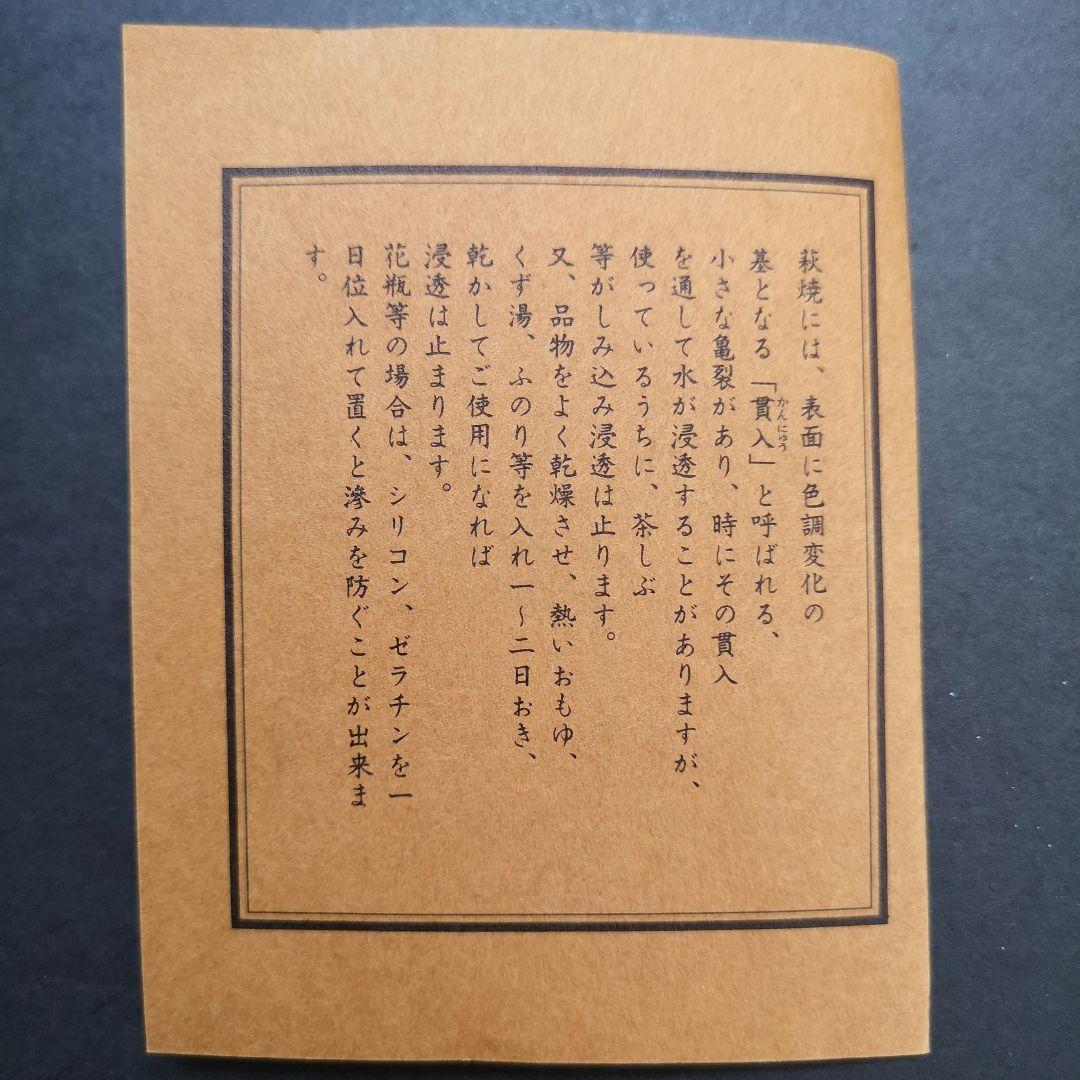 萩焼には、表面に色調変化の
基となる「貫入」と呼ばれる、
かんにゅう
小さな亀裂があり、時にその貫入
を通して水が浸透することがありますが、
使っているうちに、茶しぶ
等がしみ込み浸透は止ります。
又、品物をよく乾燥させ、熱いおもゆ、
くず湯、ふのり等を入れ一～二日おき、
乾かしてご使用になれば
浸透は止まります。
花瓶等の場合は、シリコン、ゼラチンを一
日位入れて置くと滲みを防ぐことが出来ま
す。